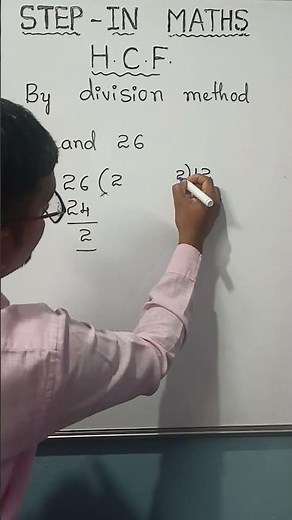 STEP-IN MATHS
H.C.F.
By division method
and 26
26 (2
24
2
2)12